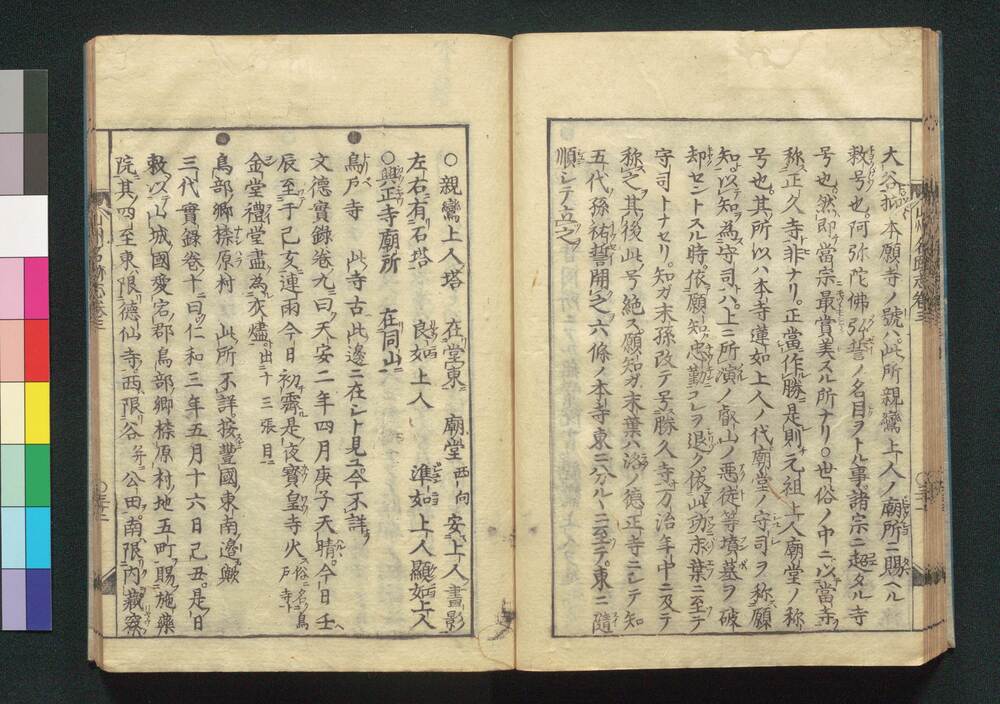 大谷拡本願寺ノ號ハ此所親鸞上人ノ廟所ニ賜ヘル
救号也阿弥陀佛弘誓ノ名目ヲトル事諸宗ニ超タル寺
号也然即當宗最賞美スル所ナリ○世俗ノ中ニハ當寺ヲ
称正久寺非ナリ正當作勝是則元祖上人廟堂ノ称
号也其所以ハ本寺蓮如上人ノ代廟堂ノ守司ヲ称願
知以知為守司ハ上ニ所演ノ叡山ノ悪徒等墳墓ヲ破
却セントスル時依願知忠勤コレヲ退ク依此功末葉ニ至テ
守司トナセリ知ガ末孫改テ号勝久寺万治年中ニ及テ
称之其後此号絶ス願知ガ末葉ハ洛ノ徳正寺ニシテ知
五代孫祐誓開之六條ノ本寺東ニ分ルヽニ至テ東ニ隨
順シテ立之
山州名跡志巻三
○親鸞上人塔 在堂東 廟堂西向 安上人畫影
左右有石塔 良如上人 準如上人顯如上人
○興正寺廟所 在同山
●鳥戸寺 此寺古此邊ニ在シト見ユ今不詳
文徳實録巻九曰天安二年四月庚子天晴今日壬
辰至于己亥連雨今日初霽是夜寶皇寺火俗名鳥戸寺
金堂禮堂盡為灰燼出十三張目
●鳥部郷㯃原村 此所不詳按豐國東南邊歟
三代實録巻十曰仁和三年五月十六日己丑是日
敕以山城國愛宕郡鳥部郷㯃原村地五町賜施藥
院其四至東限徳仙寺西限谷并公田南限内藏寮